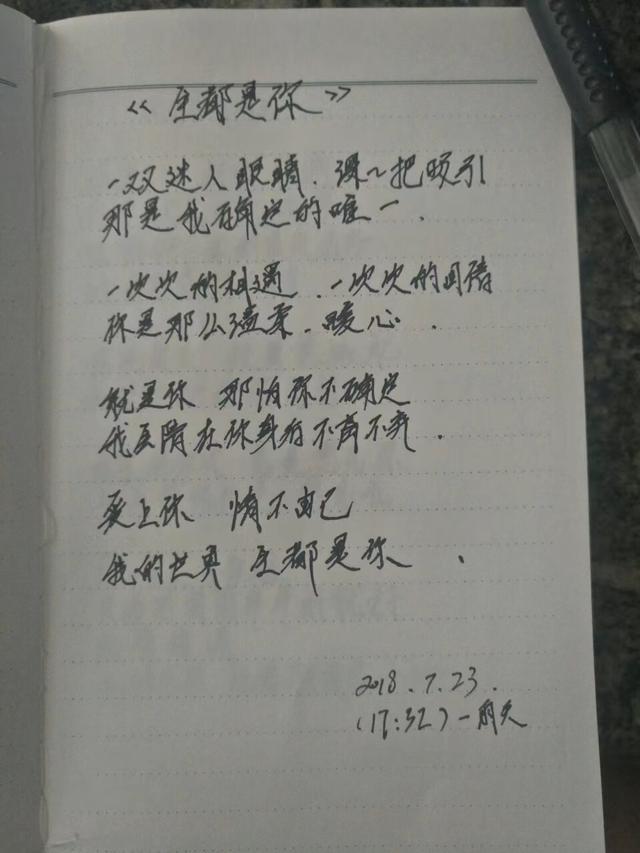 《全都是你》
一双迷人眼睛.深深把吸引
那是我确定的唯一.
一次次的相遇.一次次的回信
你是那么温柔.暖心.
就是你 那怕你不确定
我至陪在你身旁不离不弃.
爱上你 情不由己
我的世界 全都是你.
2018.7.23.
(17:32)一雨天